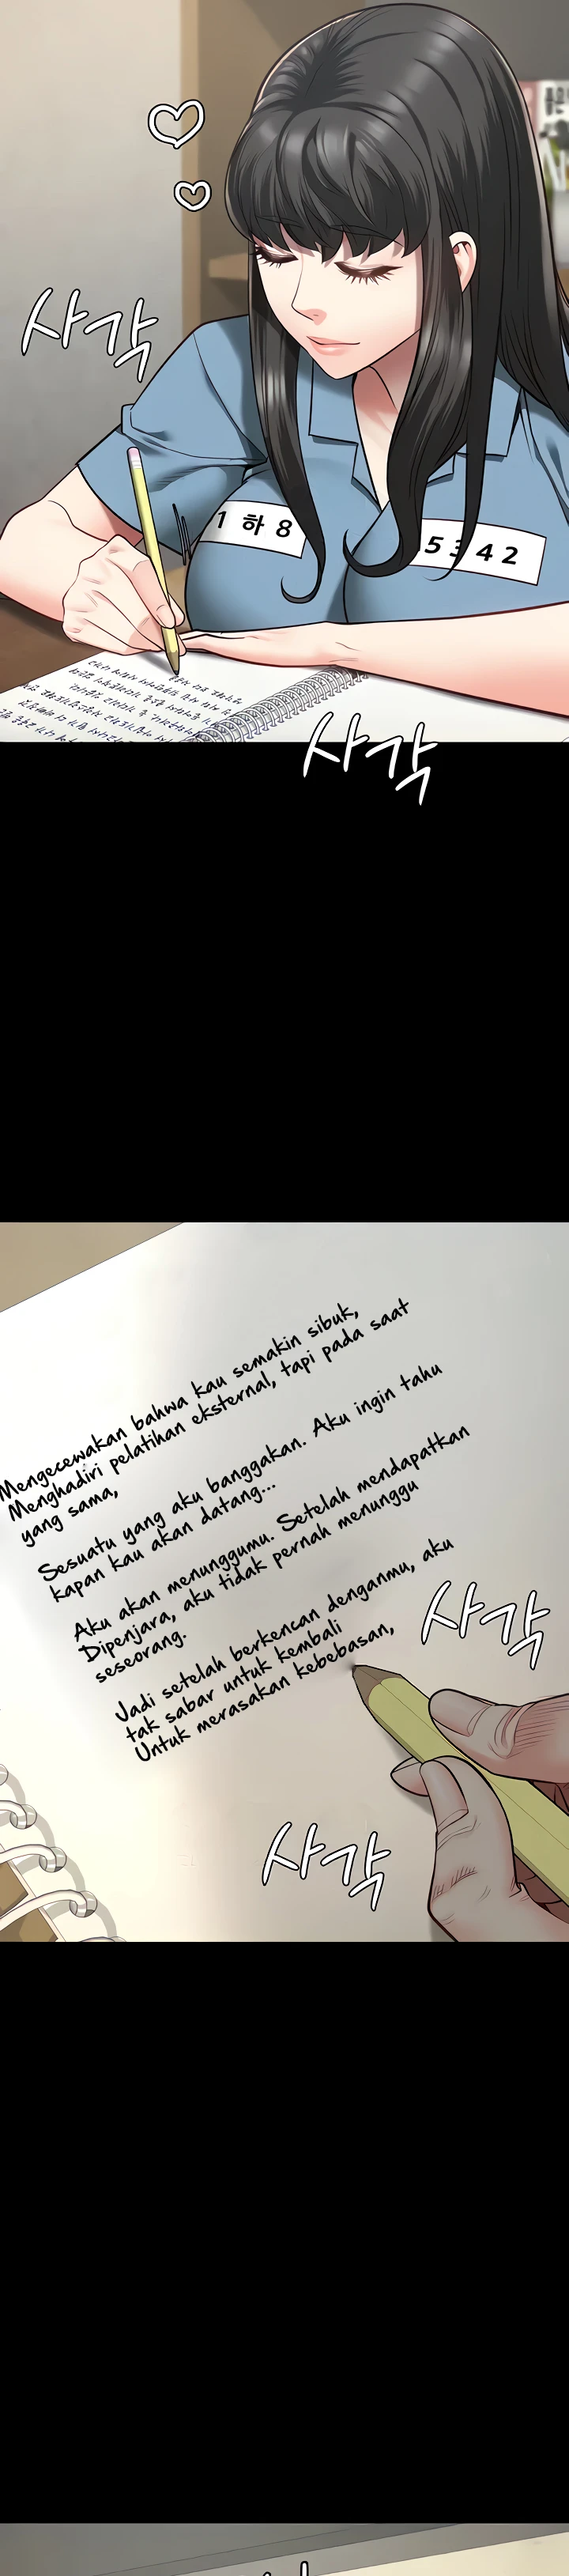 사각
1 하 8
5342
사각
Mengecewakan bahwa kau semakin sibuk,
Menghadiri pelatihan eksternal, tapi pada saat
yang sama,
Sesuatu yang aku banggakan. Aku ingin tahu
kapan kau akan datang...
Aku akan menunggumu. Setelah mendapatkan
Dipenjara, aku tidak pernah menunggu
seseorang.
Jadi setelah berkencan denganmu, aku
tak sabar untuk kembali
Untuk merasakan kebebasan,
사각
사각